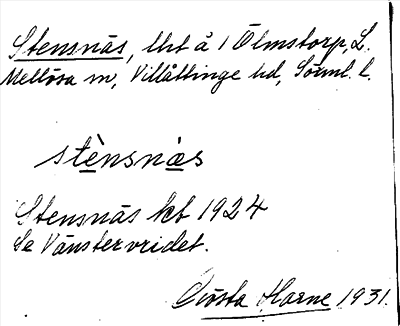 Stensnäs, lht å 1 Ölmstorp, L.
Mellösa sn, Villåttinge hd, Sörml. l.
stènsnäs
Stensnäs kb 1924
Se Vänstervridet.
Gösta Harne 1931.